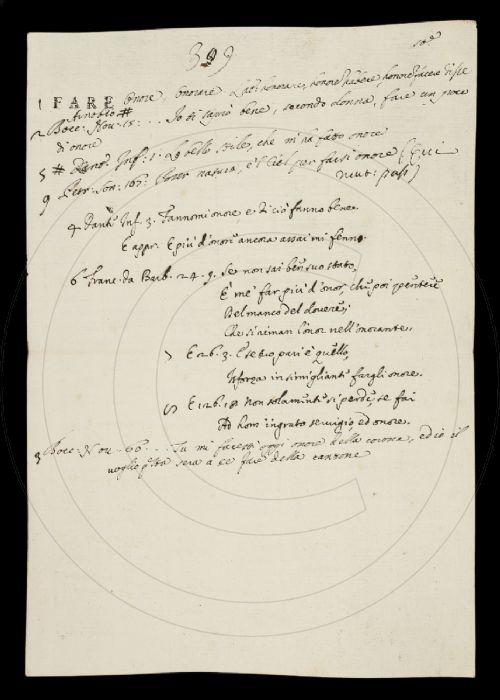 399
1 FARE onore, onorare. Lat. honorare, honore habere, honore facere
2 Bocc: Nov: 15 . . . Io di farvi bene, secondo donna, fare un poco
di onore
5 # Dant. Inf: 1. Lo bello stile, che mi ha fatto onore
9 Petr: Son: natura, e 'l Ciel per farsi onore (
4 Dant. Inf. 3. Fannomi onore e di ciò fanno bene.
E appr. E più d'onore ancora assai mi fenno.
6 Franc. da Barb. 24. 9. Se non sai ben suo stato,
E me' far più d'onor, che poi
Bel manco del dovere;
Che si riman l'onor nell'onorante.
7 E 126. 3. E se tuo pari è quello,
Isforza in simigliante fargli onore.
8 E 126. 18 Non solamente si perde, se fai
Ad hom ingrato servigio ed onore.
3 Bocc: Nov: . . . Tu mi facesti oggi onore della corona, ed io il
voglio q.sta sera a te fare della canzone